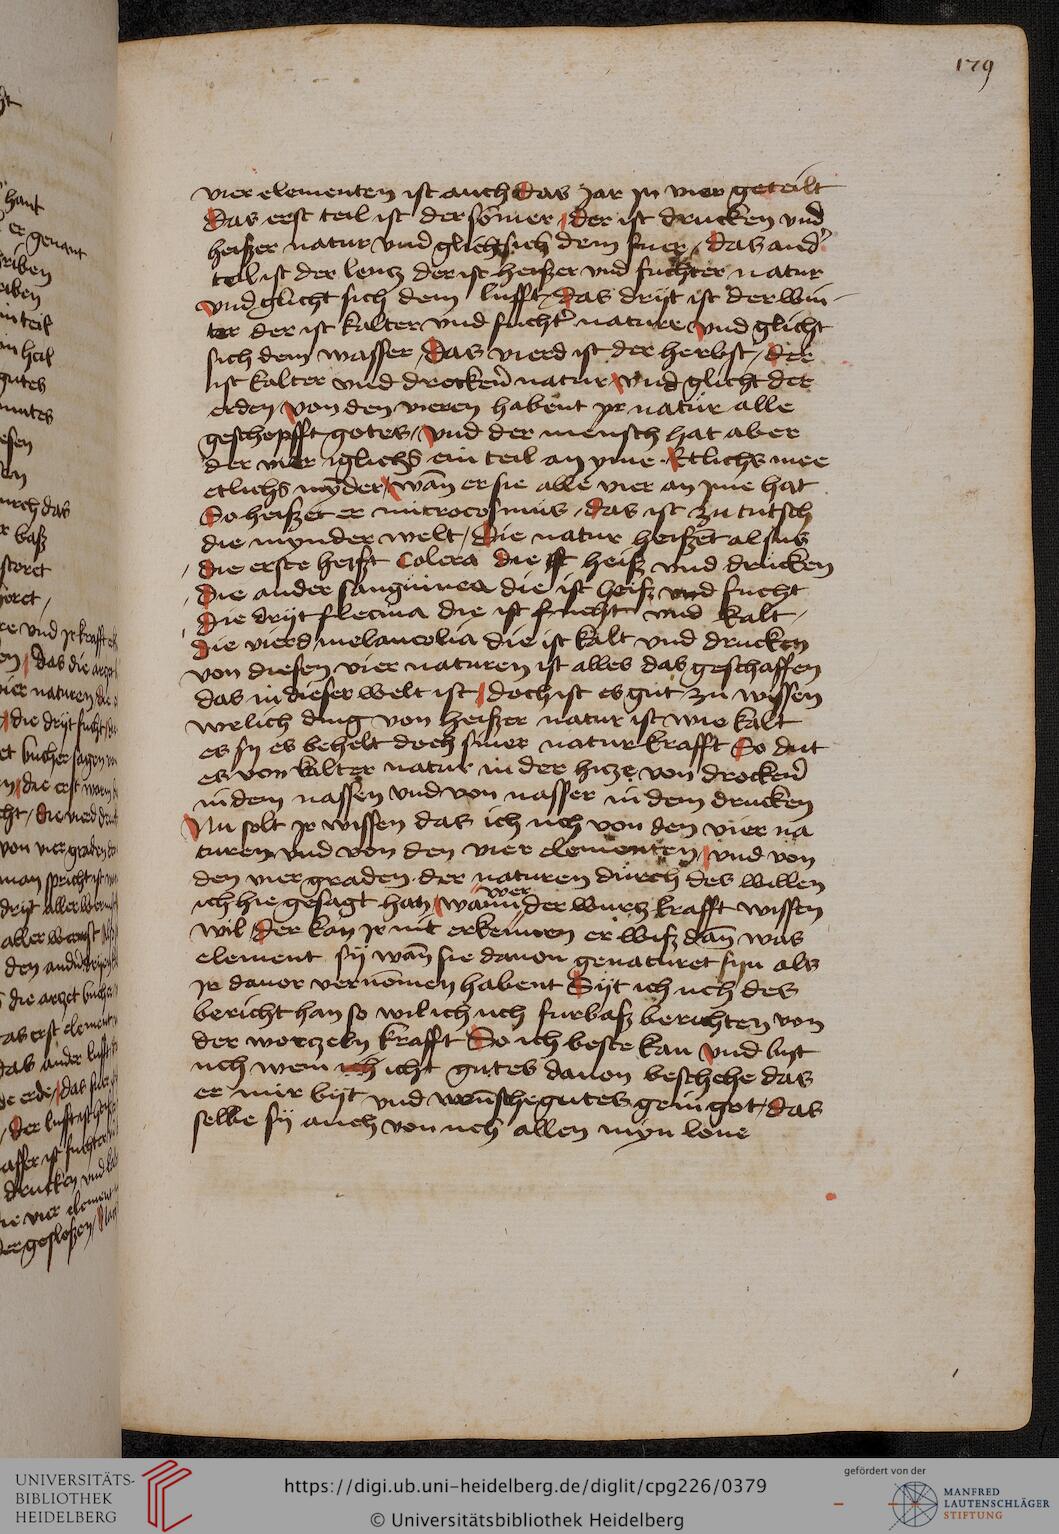 179
vier elementen ist auch das Jar jn vier geteilt
Das erst teil ist der som̄er / der ist drucken vnd
heiſzer natur vnd glicht sich dem fuer / das and'
teil ist der lentz der ist heiſzer vnd fuchter natur
vnd glicht sich dem lufft / das drijt ist der win-
ter der ist kalter vnd fucht' nature vnd glicht
sich dem wasser / das vierd ist der herbst / der
ist kalter vnd drocken̄ natur / vnd glicht der
erden / von den vieren habent jr natur alle
geschopfft gotes / vnd der mensch hat aber
der vier iglichs ein teil an yme Etlichs mee
etlichs mȳder / wān er sie alle vier an jme hat
Do heiſzet er microcosmus / das ist zu tutsch
die mynder welt / die natur heiſzēt alsus
die erste heiſzt Colera die ist heiſz vnd drucken
die ander sanguinea die ist heiſz vnd fucht
Die drijt flecma die ist fucht vnd kalt /
die vierd melancolia die ist kalt vnd drucken
von diesen vier naturen ist alles das geschaffen
das in dieser welt ist / doch ist es gut zu wissen
welich ding von heiſzer natur ist wie kalt
es sy es behelt doch siner natur krafft So dut
es von kalter natur in der hicze von drocken̄
in dem nassen vnd von nasser in dem drucken
Nu solt jr wissen das ich uch von den vier na
turen vnd von den vier elementen / vnd von
den vier graden der naturen durch des willen
ich hie gesagt han / wann wer der wurtz krafft wissen
wil / der kan jr nit erkennen er wiſz dān was
element sij wān sie dauon genaturet sijn als
jr dauor vernōmen habent Sijt ich uch des
bericht han so wil ich uch furbaſz berichten von
der worczeln krafft So ich beste kan vnd bist
uch wem icht gutes dauon beschehe das
er mir bijt vnd wūsche gutes gein got / das
selbe sij auch von uch allen myn lone
UNIVERSITÄTS-
BIBLIOTHEK
HEIDELBERG
https://digi.ub.uni-heidelberg.de/diglit/cpg226/0379
© Universitätsbibliothek Heidelberg
gefördert von der
MANFRED
LAUTENSCHLÄGER
STIFTUNG